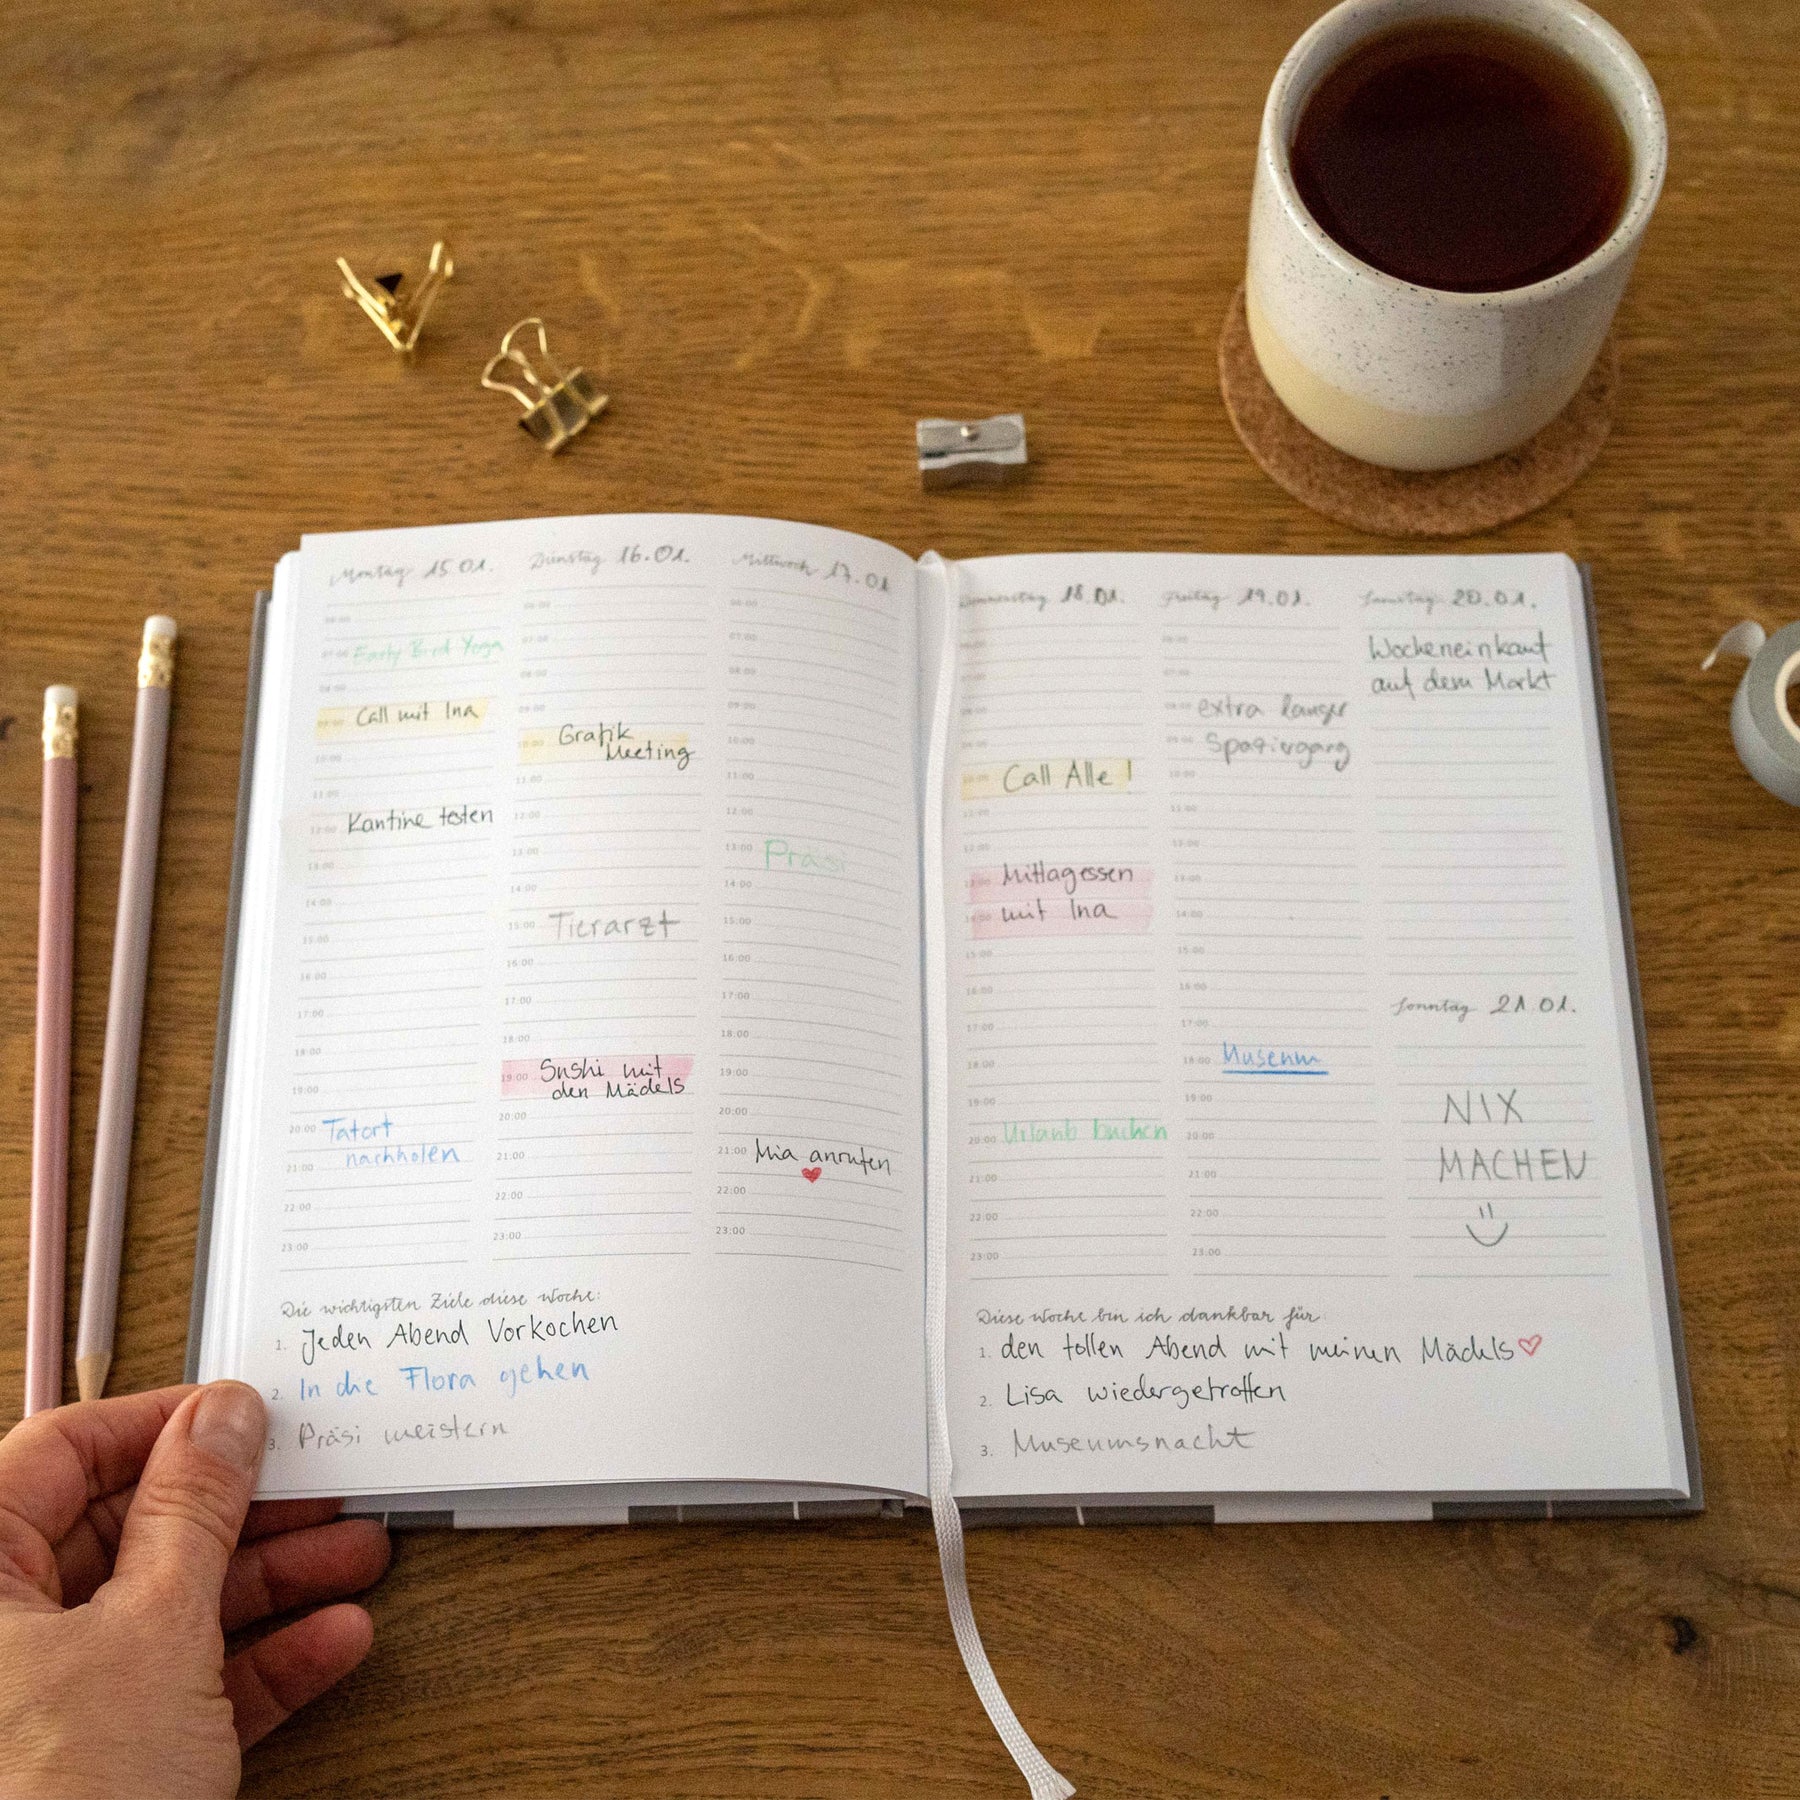 Montag 15.01.
07:00 Early Bird Yoga
09:00 Call mit Ina
10:00
11:00
12:00 Kantine testen
13:00
14:00
15:00
16:00
17:00
18:00
19:00
20:00 Tatort
21:00 nachholen
22:00
23:00
Dienstag 16.01.
07:00
08:00
09:00
10:00 Grafik
Meeting
11:00
12:00
13:00
14:00
15:00 Tierarzt
16:00
17:00
18:00
19:00 Sushi mit
den Mädels
20:00
21:00
22:00
23:00
Mittwoch 17.01
07:00
08:00
09:00
10:00
11:00
12:00
13:00 Präsi
14:00
15:00
16:00
17:00
18:00
19:00
20:00
21:00 Mia anrufen
22:00
23:00
Die wichtigsten Ziele diese Woche:
1. Jeden Abend Vorkochen
2. In die Flora gehen
3. Präsi meistern
Donnerstag 18.01.
10:00 Call Alle!
12:00
13:00 Mittagessen
14:00 mit Ina
15:00
16:00
17:00
18:00
19:00
20:00 Urlaub buchen
21:00
22:00
23:00
Freitag 19.01.
08:00 extra langer
09:00 Spaziergang
10:00
11:00
12:00
13:00
14:00
15:00
16:00
17:00
18:00 Museum
19:00
20:00
21:00
22:00
23:00
Samstag 20.01.
Wocheneinkauf
auf dem Markt
Sonntag 21.01.
NIX
MACHEN
Diese Woche bin ich dankbar für:
1. den tollen Abend mit meinen Mädels
2. Lisa wiedergetroffen
3. Museumsnacht